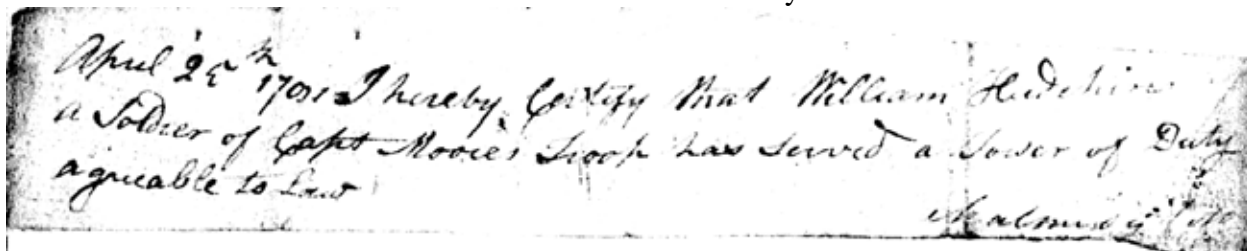 April 25th 1781 I hereby Certify that William Hutchins
a Soldier of Capt Moores Troop has served a Tower of Duty
agreable to Law